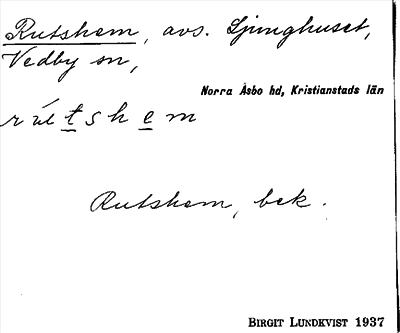 Rutshem, avs. Ljunghuset,
Vedby sn,
Norra Åsbo hd, Kristianstads län
rút s h e m
Rutshem, bek.
BIRGIT LUNDKVIST 1937